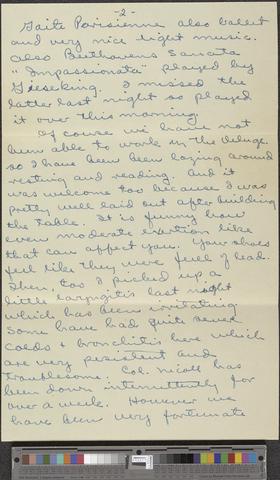 -2-
Gaite Parisienne also ballet
and very nice light music.
Also Beethovens Sonata
"Impassionata" played by
Gieseking. I missed the
latter last night so played
it over this morning.
Of course we have not
been able to work in the deluge
so I have been lazing around
resting and reading. And it
was welcome too because I was
pretty well laid out after building
the table. It is funny how
even moderate exertion like
that can affect you. Your shoes
feel like they were full of lead.
Then, too I picked up a
little laryngitis last night
which has been irritating
Some have had quite severe
colds & bronchitis here which
are very persistent and
troublesome. Col. Nicoll has
been down intermittently for
over a week. However we
have been very fortunate